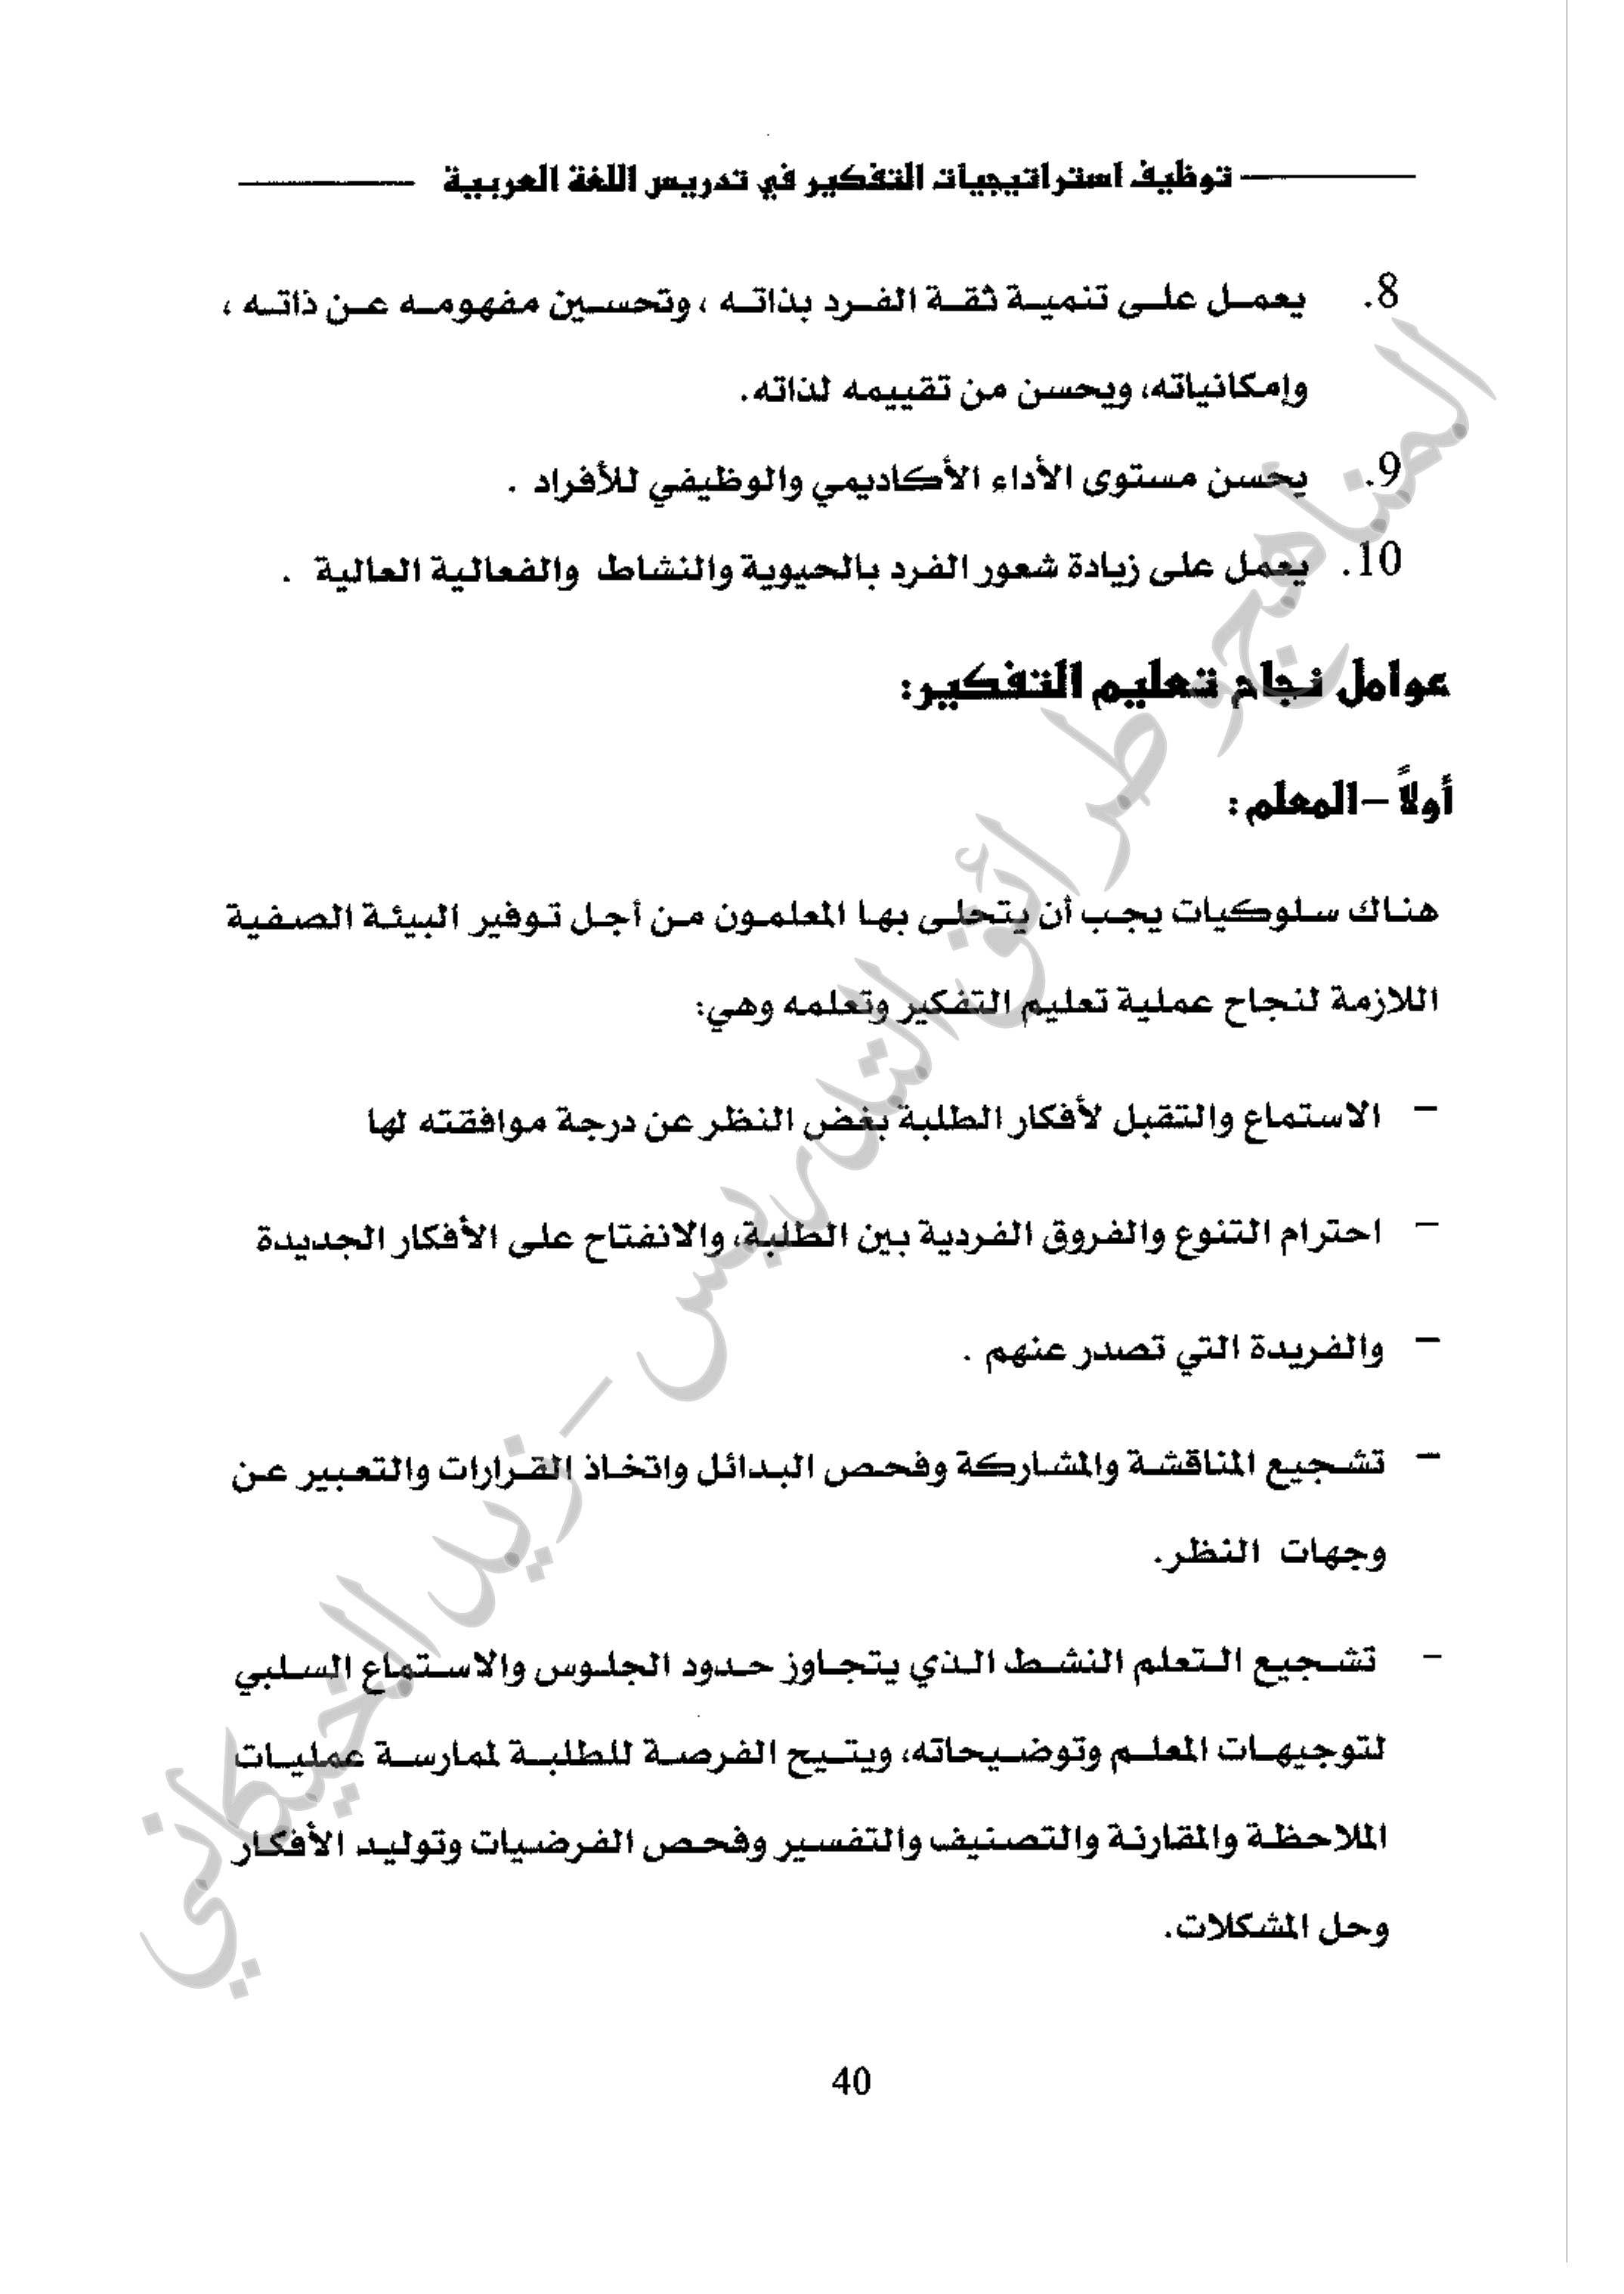 توظيف استراتيجيات التفكير في تدريس اللغة العربية
8. يعمل على تنمية ثقة الفرد بذاته ، وتحسين مفهومه عن ذاته ،
وإمكانياته، ويحسن من تقييمه لذاته.
9. يحسن مستوى الأداء الأكاديمي والوظيفي للأفراد .
10. يعمل على زيادة شعور الفرد بالحيوية والنشاط والفعالية العالية .
عوامل نجاح تعليم التفكير:
أولاً –المعلم :
هناك سلوكيات يجب أن يتحلى بها المعلمون من أجل توفير البيئة الصفية
اللازمة لنجاح عملية تعليم التفكير وتعلمه وهي:
– الاستماع والتقبل لأفكار الطلبة بغض النظر عن درجة موافقته لها
– احترام التنوع والفروق الفردية بين الطلبة، والانفتاح على الأفكار الجديدة
– والفريدة التي تصدر عنهم .
– تشجيع المناقشة والمشاركة وفحص البدائل واتخاذ القرارات والتعبير عن
وجهات النظر.
– تشجيع التعلم النشط الذي يتجاوز حدود الجلوس والاستماع السلبي
لتوجيهات المعلم وتوضيحاته، ويتيح الفرصة للطلبة لممارسة عمليات
الملاحظة والمقارنة والتصنيف والتفسير وفحص الفرضيات وتوليد الأفكار
وحل المشكلات.
40
المناهج وطرائق التدريس – زيد الخيكاني